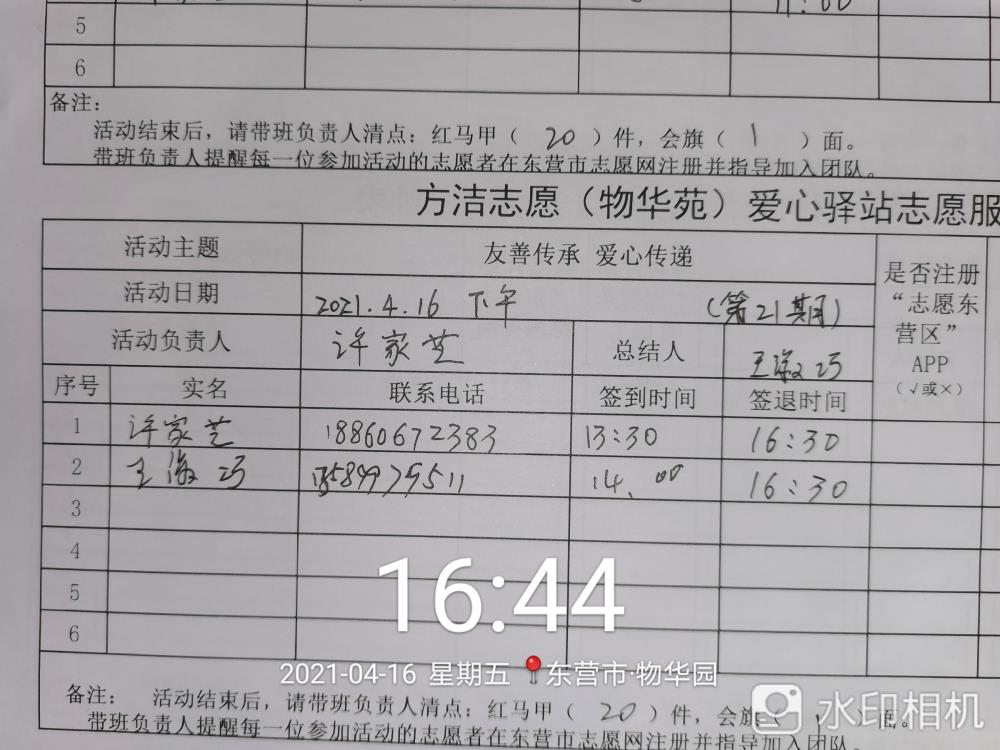 5
6
备注：
活动结束后，请带班负责人清点：红马甲（ 20 ）件，会旗（ 1 ）面。
带班负责人提醒每一位参加活动的志愿者在东营市志愿网注册并指导加入团队。
方洁志愿（物华苑）爱心驿站志愿服
活动主题 友善传承 爱心传递 是否注册“志愿东营区”APP（√或×）
活动日期 2021.4.16 下午 （第21期）
活动负责人 许家芝 总结人 王淑巧
序号 实名 联系电话 签到时间 签退时间
1 许家芝 18860672383 13:30 16:30
2 王淑巧 14.00 16:30
3
4
5
6
16:44
2021-04-16 星期五 东营市·物华园
备注： 活动结束后，请带班负责人清点：红马甲（ 20 ）件，会旗（ 1 ）面。
带班负责人提醒每一位参加活动的志愿者在东营市志愿网注册并指导加入团队。
水印相机